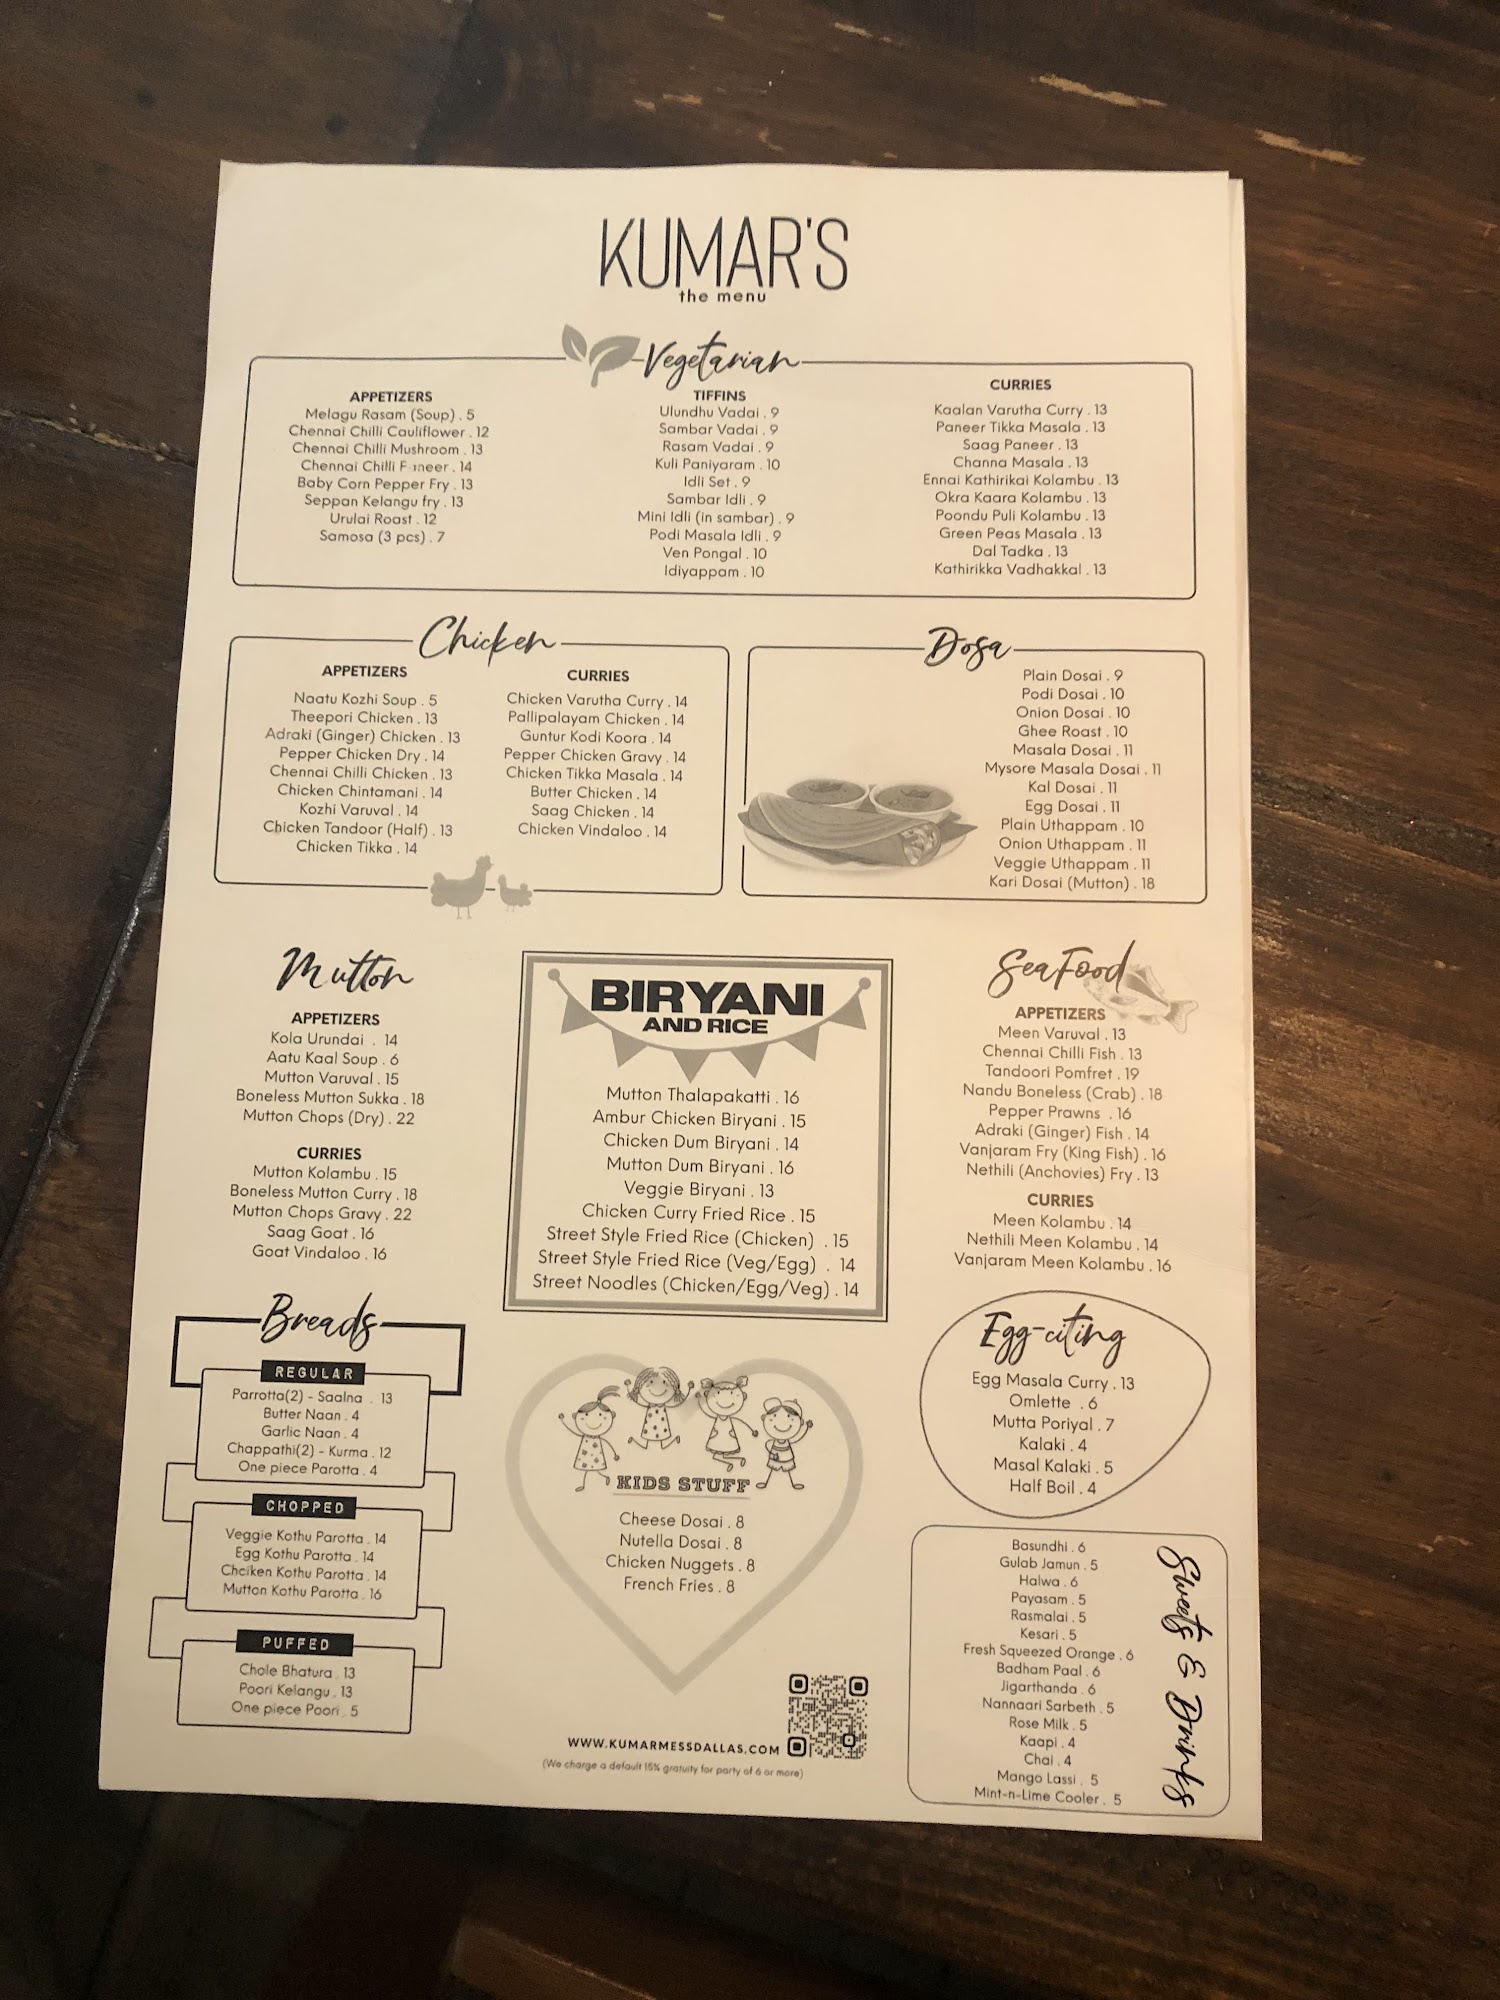 KUMAR'S
the menu
Vegetarian
APPETIZERS
Melagu Rasam (Soup) . 5
Chennai Chilli Cauliflower . 12
Chennai Chilli Mushroom . 13
Chennai Chilli F neer . 14
Baby Corn Pepper Fry . 13
Seppan Kelangu fry . 13
Urulai Roast . 12
Samosa (3 pcs) . 7
TIFFINS
Ulundhu Vadai . 9
Sambar Vadai . 9
Rasam Vadai . 9
Kuli Paniyaram . 10
Idli Set . 9
Sambar Idli . 9
Mini Idli (in sambar) . 9
Podi Masala Idli . 9
Ven Pongal . 10
Idiyappam . 10
CURRIES
Kaalan Varutha Curry . 13
Paneer Tikka Masala . 13
Saag Paneer . 13
Channa Masala . 13
Ennai Kathirikai Kolambu . 13
Okra Kaara Kolambu . 13
Poondu Puli Kolambu . 13
Green Peas Masala . 13
Dal Tadka . 13
Kathirikka Vadhakkal . 13
Chicken
APPETIZERS
Naatu Kozhi Soup . 5
Theepori Chicken . 13
Adraki (Ginger) Chicken . 13
Pepper Chicken Dry . 14
Chennai Chilli Chicken . 13
Chicken Chintamani . 14
Kozhi Varuval . 14
Chicken Tandoor (Half) . 13
Chicken Tikka . 14
CURRIES
Chicken Varutha Curry . 14
Pallipalayam Chicken . 14
Guntur Kodi Koora . 14
Pepper Chicken Gravy . 14
Chicken Tikka Masala . 14
Butter Chicken . 14
Saag Chicken . 14
Chicken Vindaloo . 14
Dosa
Plain Dosai . 9
Podi Dosai . 10
Onion Dosai . 10
Ghee Roast . 10
Masala Dosai . 11
Mysore Masala Dosai . 11
Kal Dosai . 11
Egg Dosai . 11
Plain Uthappam . 10
Onion Uthappam . 11
Veggie Uthappam . 11
Kari Dosai (Mutton) . 18
Mutton
APPETIZERS
Kola Urundai . 14
Aatu Kaal Soup . 6
Mutton Varuval . 15
Boneless Mutton Sukka . 18
Mutton Chops (Dry) . 22
CURRIES
Mutton Kolambu . 15
Boneless Mutton Curry . 18
Mutton Chops Gravy . 22
Saag Goat . 16
Goat Vindaloo . 16
BIRYANI
AND RICE
Mutton Thalapakatti . 16
Ambur Chicken Biryani . 15
Chicken Dum Biryani . 14
Mutton Dum Biryani . 16
Veggie Biryani . 13
Chicken Curry Fried Rice . 15
Street Style Fried Rice (Chicken) . 15
Street Style Fried Rice (Veg/Egg) . 14
Street Noodles (Chicken/Egg/Veg) . 14
SeaFood
APPETIZERS
Meen Varuval . 13
Chennai Chilli Fish . 13
Tandoori Pomfret . 19
Nandu Boneless (Crab) . 18
Pepper Prawns . 16
Adraki (Ginger) Fish . 14
Vanjaram Fry (King Fish) . 16
Nethili (Anchovies) Fry . 13
CURRIES
Meen Kolambu . 14
Nethili Meen Kolambu . 14
Vanjaram Meen Kolambu . 16
Breads
REGULAR
Parrotta(2) - Saalna . 13
Butter Naan . 4
Garlic Naan . 4
Chappathi(2) - Kurma . 12
One piece Parotta . 4
CHOPPED
Veggie Kothu Parotta . 14
Egg Kothu Parotta . 14
Chciken Kothu Parotta . 14
Mutton Kothu Parotta . 16
PUFFED
Chole Bhatura . 13
Poori Kelangu . 13
One piece Poori . 5
KIDS STUFF
Cheese Dosai . 8
Nutella Dosai . 8
Chicken Nuggets . 8
French Fries . 8
Egg-citing
Egg Masala Curry . 13
Omlette . 6
Mutta Poriyal . 7
Kalaki . 4
Masal Kalaki . 5
Half Boil . 4
Sweets & Drinks
Basundhi . 6
Gulab Jamun . 5
Halwa . 6
Payasam . 5
Rasmalai . 5
Kesari . 5
Fresh Squeezed Orange . 6
Badham Paal . 6
Jigarthanda . 6
Nannaari Sarbeth . 5
Rose Milk . 5
Kaapi . 4
Chai . 4
Mango Lassi . 5
Mint-n-Lime Cooler . 5
WWW.KUMARMESSDALLAS.COM
(We charge a default 15% gratuity for party of 6 or more)